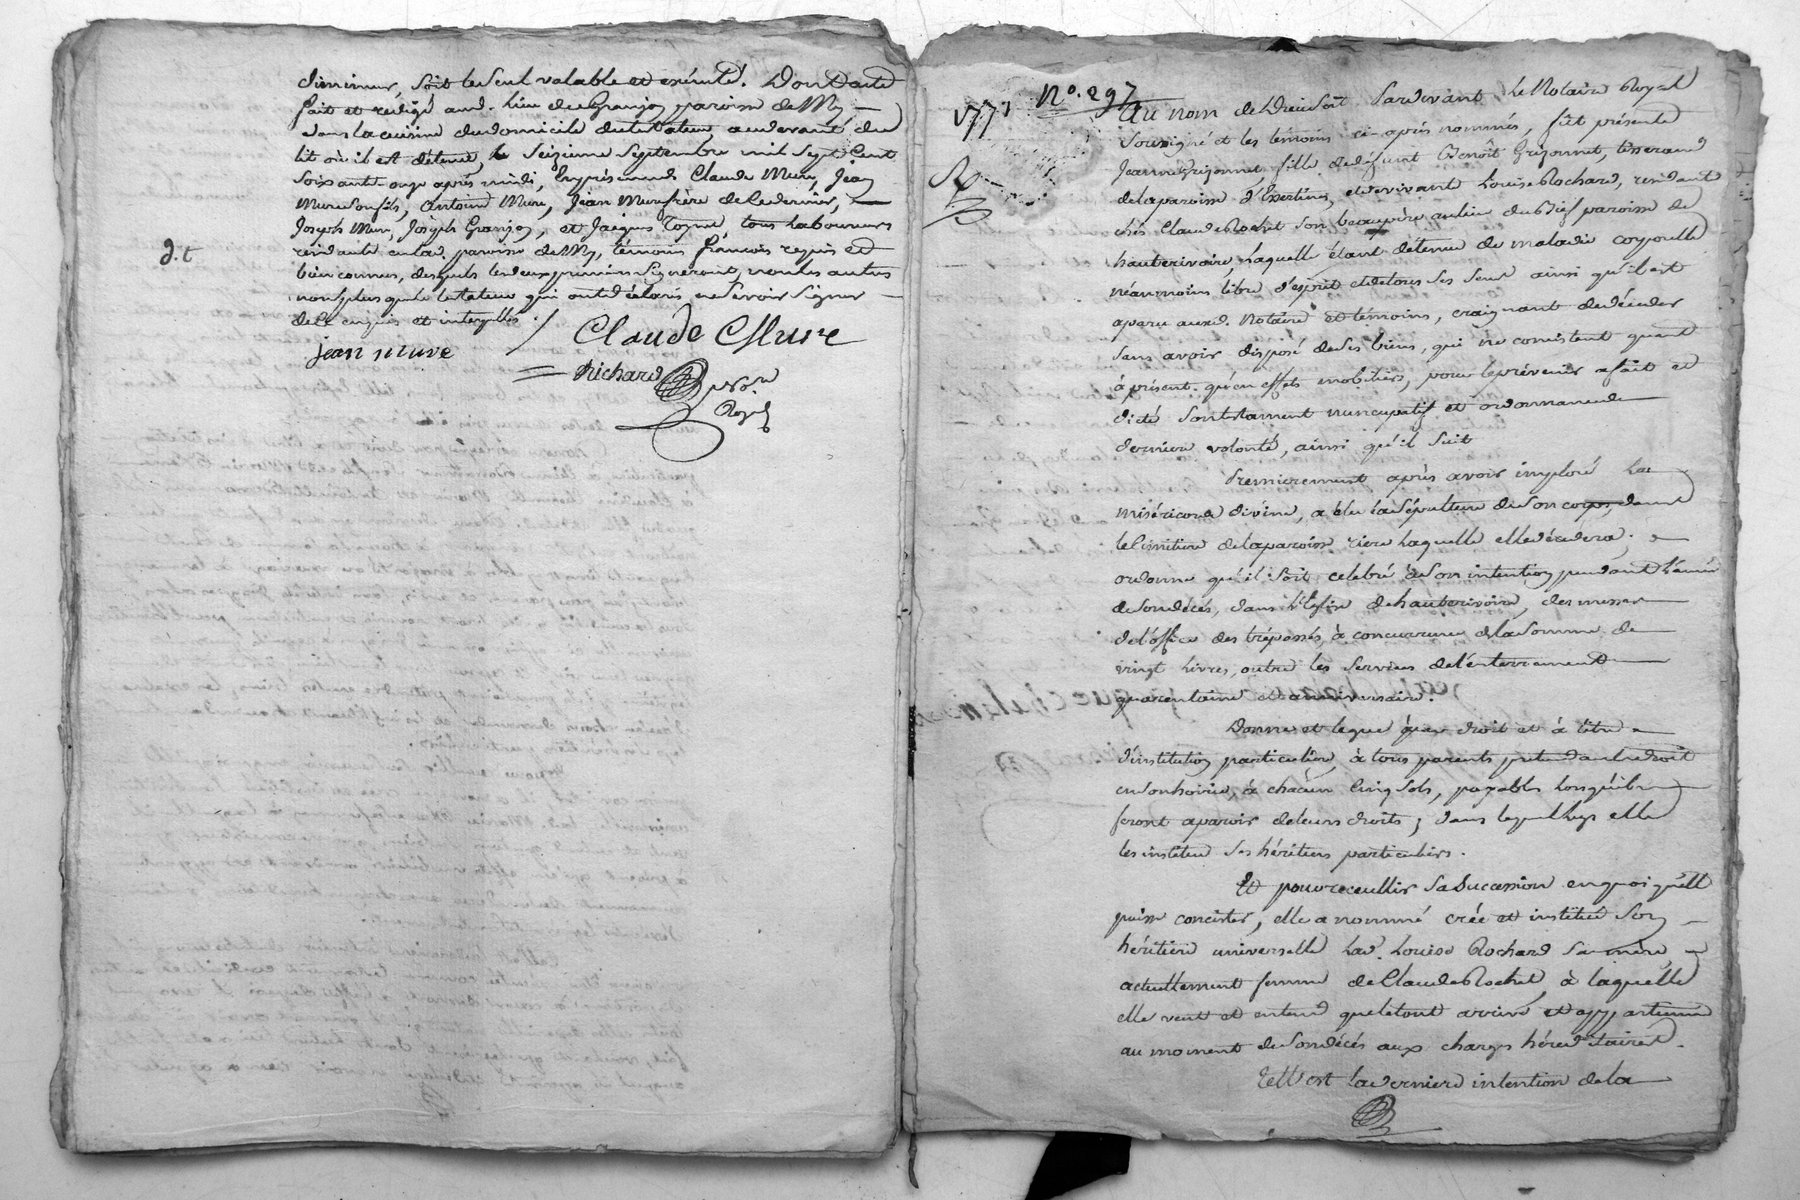 dernier, soit le seul valable et exécuté. Dont acte
fait et rédigé aud. lieu de Granjon paroisse de My —
dans la cuisine du domicile du testateur, au devant du
lit où il est détenu, le seizieme septembre mil sept cent
soixante onze après midi, En présence de Claude Mure, Jean
Mure son fils, Antoine Mure, Jean Mure frère de ce dernier, —
Joseph Mure, Joseph Granjon, et Jacques Toynet, tous laboureurs
résidants en lad. paroisse de My, témoins françois requis et
bien connus, desquels les deux premiers signeront, non les autres
non plus que le testateur qui ont déclaré ne savoir signer —
de ce enquis et interpellés. /
d.t
jean mure
Claude Mure
= Richard no.re
Royal
1771
N.o 297
Au nom de Dieu soit Pardevant Le Notaire Royal
Soussigné et les témoins ci-après nommés, fût présente
Jeanne Grizonnet, fille de défunt Benoît Grizonnet, tisserand
de la paroisse d'Essertines, et de vivante Louise Rochard, residante
chés Claude Rochet son beaupère au lieu du Bief paroisse de
hauterivoire, Laquelle étant détenue de maladie corporelle
néanmoins libre d'esprit et de tous ses sens ainsi qu'il est
aparu auxd. Notaire et témoins, craignant de décéder
sans avoir disposé de ses biens, qui ne consistent quant
à présent qu'en effets mobiliers, pour le prévenir a fait et
dicté son testament nuncupatif et ordonnance de
derniere volonté, ainsi qu'il suit
Premierement après avoir imploré La
miséricorde divine, a élu la sépulture de son corps, dans
le Cimitiere de la paroisse riere Laquelle elle décédera; —
ordonne qu'il soit celebré à son intention pendant l'année
de son décés, dans l'Eglise de hauterivoire, des messes
de l'office des trépassés, à concurrence de la somme de
vingt Livres, outre les services de l'enterrement
quarentaine et anniversaire.
Donne et legue par droit et à titre
d'institution particuliere, à tous parents pretendants droit
en son hoirie, à chacun Cinq Sols, payables Lorsqu'ils
feront aparoir de leurs droits; dans lesquels legs elle
les institue ses héritiers particuliers.
Et pour recueillir sa succession en quoi qu'elle
puisse concister, elle a nommé créé et institué son —
héritiere universelle Lad. Louise Rochard sa mère, —
actuellement femme de Claude Rochet, à laquelle
elle veut et entend que le tout arrive et appartienne
au moment de son décés aux charges héréditaires.
Telle est la derniere intention de la